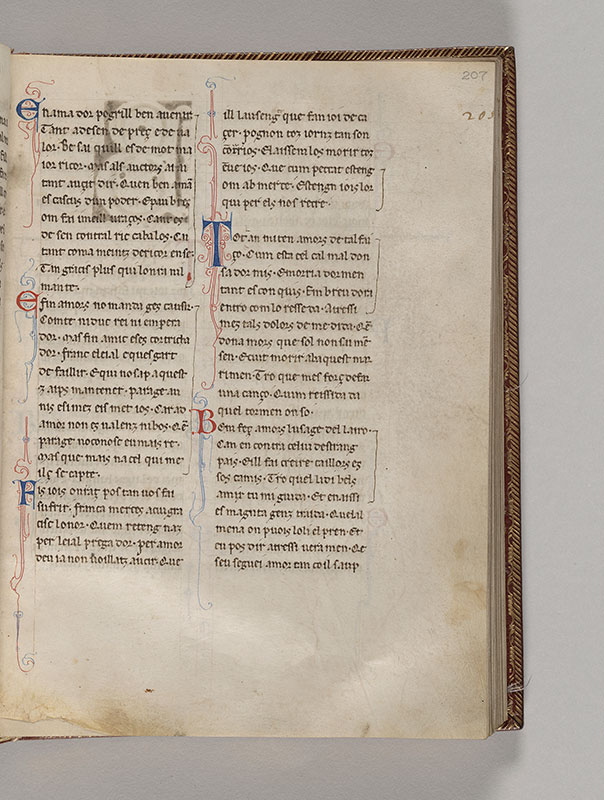 207
Enama dor pogrill ben auenir
Tant adesen de preç e de ua
lor. Be sai quill es de mot ma
ior ricor. mas als auctors ai au
tant auçit dir. Quen ben amā
es cascus dun poder. E pau bres
om fai
de sen contral ric cabalos. Cu
tant coma meinz dericor ense.
Tan gracis plus qui lonra nil
mante.
E fin amors no manda ges causir.
Comte ni duc rei ni empera
dor. mas fin amic eses cor tricha
dor. franc eleial eques gart
de faillir. E qui no sap aquest
z aips mantener. parage au
nis esi mez eis met ios. Car ad
amor non es ualenz ni bos. Q̄ E
parage no conose eu mais re.
Mas que mais na cel qui me
ilz se capte.
Fis iois onratz pos tan uos fai
sufrir. franca merces acui gra
cisc lonor. Quem reteng naz
per leial prega dor. per amor
deu ia non uoillatz aucir. Que
ill lauseng que fan ioi de ca
çer. pognon toz iornz tan son
ios. E laissem los morir toz
ios. Que cum peccat esteng
om ab merce. Estengn iois lor
qui per els nos recre.
Tot an mi ten amors de tal fai
ço. Cum esta cel cal mal don
sa dor mis. E morria dormen
tant es con quis. Em breu dora
entro com lo resse da. Atressi
mes tals dolors de me dida. Q̄ E
dona mors que sol non sai mē
sen. E cuit morir ab aquest ma
rimen. Tro que mes forç de far
una canço. Quim reissida da
quel tormen on so.
Bem feç amors lusage del lairo.
Can en contra celui destrang
pais. Eill fai creire caillors es
sos camis. Tro quel lidi bels
amic tu mi guida. Et enaissi
es mainta genz traida. Quel al
mena on puois lo li el pren. Et
eu pos dir atressi uera men. Qe
seu segui amor tan coil saup